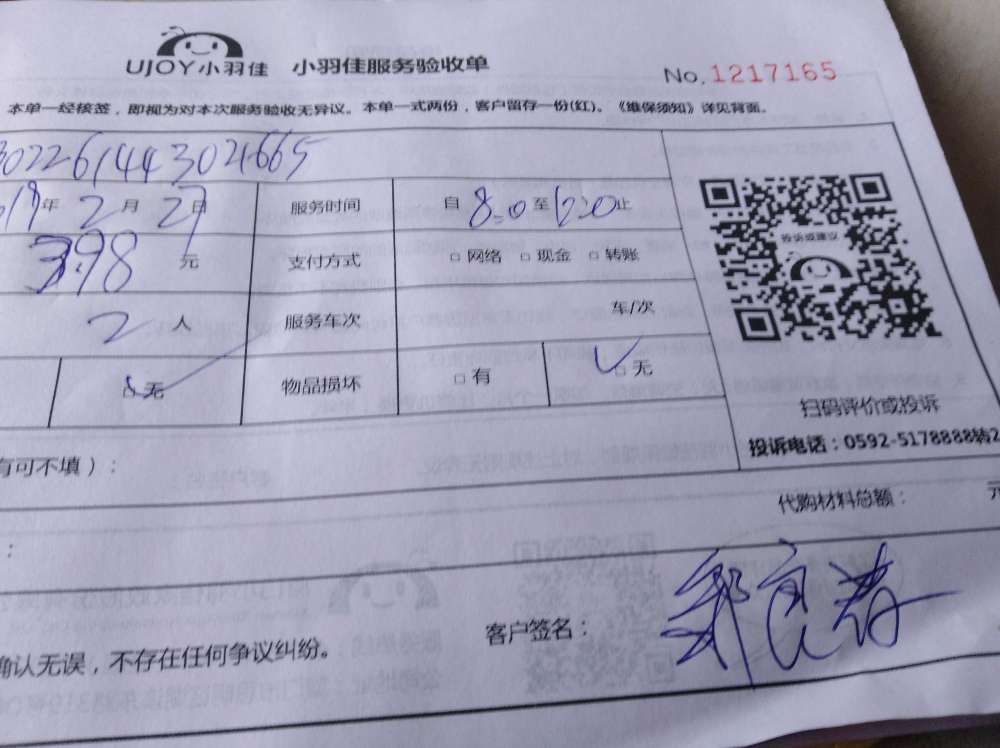 UJOY小羽佳 小羽佳服务验收单
No. 1217165
本单一经核签，即视为对本次服务验收无异议。本单一式两份，客户留存一份(红)。《维保须知》详见背面。
302261443021665
年 2 月 27 日 服务时间 自 8:0 至 12:0 止
398 元 支付方式 □ 网络 □ 现金 □ 转账
投诉或建议
2 人 服务车次 车/次
□ 无 物品损坏 □ 有 □ 无
扫码评价或投诉
投诉电话：0592-5178888转2
有可不填）：
代购材料总额： 元
：
客户签名：
确认无误，不存在任何争议纠纷。